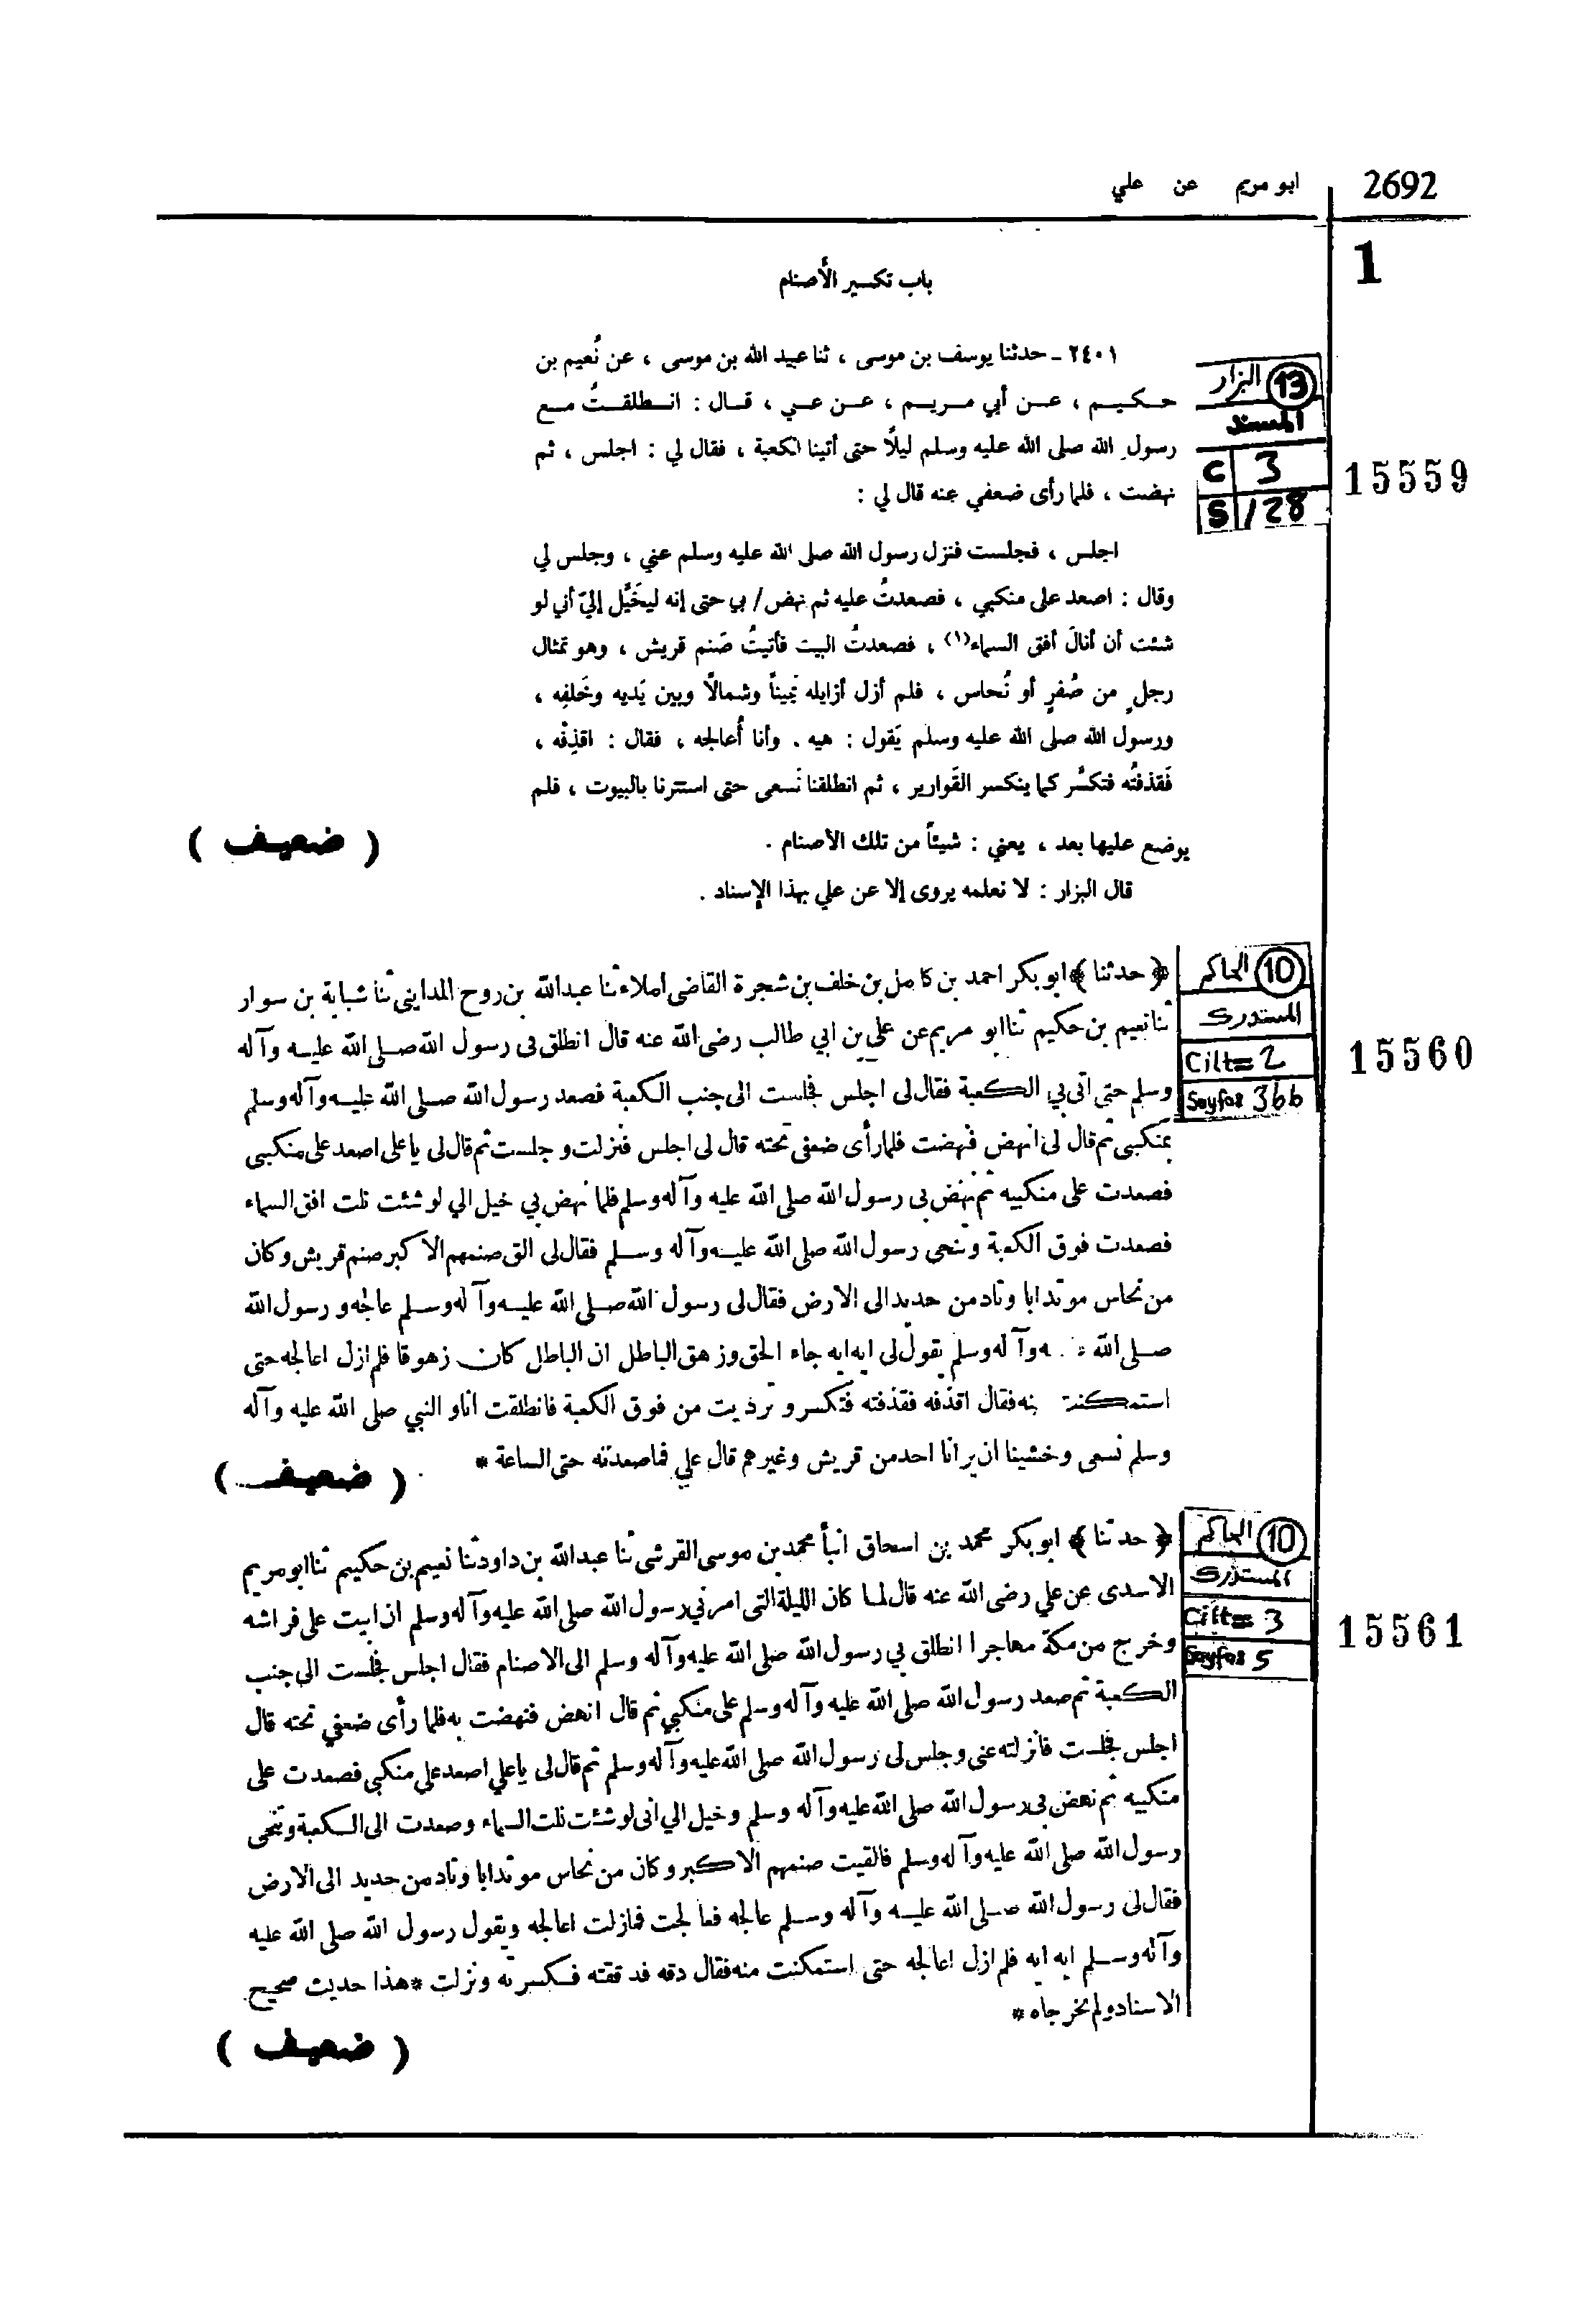 2692
ابو مريم عن علي
1
باب تكسير الأصنام
٢٤٠١ ـ حدثنا يوسف بن موسى ، ثنا عبيد الله بن موسى ، عن نُعيم بن
حكيم ، عن أبي مريم ، عن عي ، قال : انطلقتُ مع
رسول الله صلى الله عليه وسلم ليلًا حتى أتينا الكعبة ، فقال لي : اجلس ، ثم
نهضت ، فلما رأى ضعفي عنه قال لي :
البزار 13
المسند
C 3
S 128
15559
اجلس ، فجلست فنزل رسول الله صلى الله عليه وسلم عني ، وجلس لي
وقال : اصعد على منكبي ، فصعدتُ عليه ثم نهض/ بي حتى إنه ليخَيَّل إليّ أني لو
شئت أن أنالَ أفق السماء(١) ، فصعدتُ البيت فأتيتُ صَنم قريش ، وهو تمثال
رجلٍ من صُفرٍ أو نُحاس ، فلم أزل أزايله يَميناً وشمالًا وبين يَديه وخَلفِه ،
ورسول الله صلى الله عليه وسلم يَقول : هيه . وأنا أُعالجه ، فقال : اقذِفْه ،
فَقذفتُه فتكسَّر كما ينكسر القَوارير ، ثم انطلقنا نَسعى حتى استترنا بالبيوت ، فلم
يوضع عليها بعد ، يعني : شيئاً من تلك الأصنام .
( ضعيف )
قال البزار : لا نعلمه يروى إلا عن علي بهذا الإسناد .
﴿ حدثنا ﴾ ابو بكر احمد بن كامل بن خلف بن شجرة القاضى املاء ثنا عبدالله بن روح المدايني ثنا شبابة بن سوار
ثنا نعيم بن حكيم ثنا ابو مريم عن علي بن ابي طالب رضى الله عنه قال انطلق بى رسول الله صلى الله عليه وآله
وسلم حتى اتى بي الكعبة فقال لى اجلس فجلست الى جنب الكعبة فصعد رسول الله صلى الله عليه وآله وسلم
بمنكبى ثم قال لى انهض فنهضت فلما رأى ضعفى تحته قال لى اجلس فنزلت وجلست ثم قال لى يا على اصعد على منكبى
فصعدت على منكبيه ثم نهض بى رسول الله صلى الله عليه وآله وسلم فلما نهض بي خيل الي لو شئت نلت افق السماء
فصعدت فوق الكعبة وتنحى رسول الله صلى الله عليه وآله وسلم فقال لى الق صنمهم الاكبر صنم قريش وكان
من نحاس موتدا باوتاد من حديد الى الارض فقال لى رسول الله صلى الله عليه وآله وسلم عالجه ورسول الله
صلى الله وآله وسلم يقول لى ايه ايه جاء الحق وزهق الباطل ان الباطل كان زهوقا فلم ازل اعالجه حتى
استمكنت فقال اقذفه فقذفته فتكسر و ترديت من فوق الكعبة فانطلقت انا والنبي صلى الله عليه وآله
وسلم نسعى وخشينا ان يرانا احد من قريش وغيرهم قال علي فما صعدته حتى الساعة *
( ضعيف )
الحاكم 10
المستدرك
Cilt= 2
Sayfa= 366
15560
﴿ حدثنا ﴾ ابو بكر محمد بن اسحاق انبأ محمد بن موسى القرشى ثنا عبدالله بن داود ثنا نعيم بن حكيم ثنا ابو مريم
الاسدى عن علي رضى الله عنه قال لما كان الليلة التى امرني رسول الله صلى الله عليه وآله وسلم ان ابيت على فراشه
وخرج من مكة مهاجرا انطلق بي رسول الله صلى الله عليه وآله وسلم الى الاصنام فقال اجلس فجلست الى جنب
الكعبة ثم صعد رسول الله صلى الله عليه وآله وسلم على منكبي ثم قال انهض فنهضت به فلما رأى ضعفي تحته قال
اجلس فجلست فانزلته عنى وجلس لى رسول الله صلى الله عليه وآله وسلم ثم قال لى يا علي اصعد على منكبى فصعدت على
منكبيه ثم نهض بى رسول الله صلى الله عليه وآله وسلم وخيل الي انى لو شئت نلت السماء وصعدت الى الكعبة وتنحى
رسول الله صلى الله عليه وآله وسلم فالقيت صنمهم الاكبر وكان من نحاس موتدا باوتاد من حديد الى الارض
فقال لى رسول الله صلى الله عليه وآله وسلم عالجه فعالجت فمازلت اعالجه ويقول رسول الله صلى الله عليه
وآله وسلم ايه ايه فلم ازل اعالجه حتى استمكنت منه فقال دقه فدققته فكسرته ونزلت * هذا حديث صحيح
الاسناد ولم يخرجاه *
( ضعيف )
الحاكم 10
المستدرك
Cilt= 3
Sayfa= 5
15561